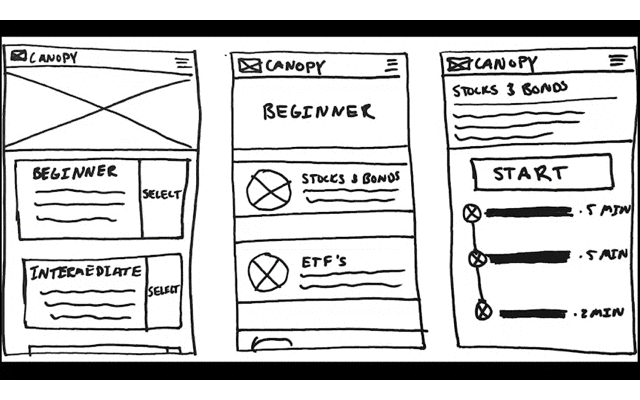 CANOPY
BEGINNER
SELECT
INTERMEDIATE
SELECT
CANOPY
BEGINNER
STOCKS & BONDS
ETF'S
CANOPY
STOCKS & BONDS
START
.5 MIN
.5 MIN
.2 MIN